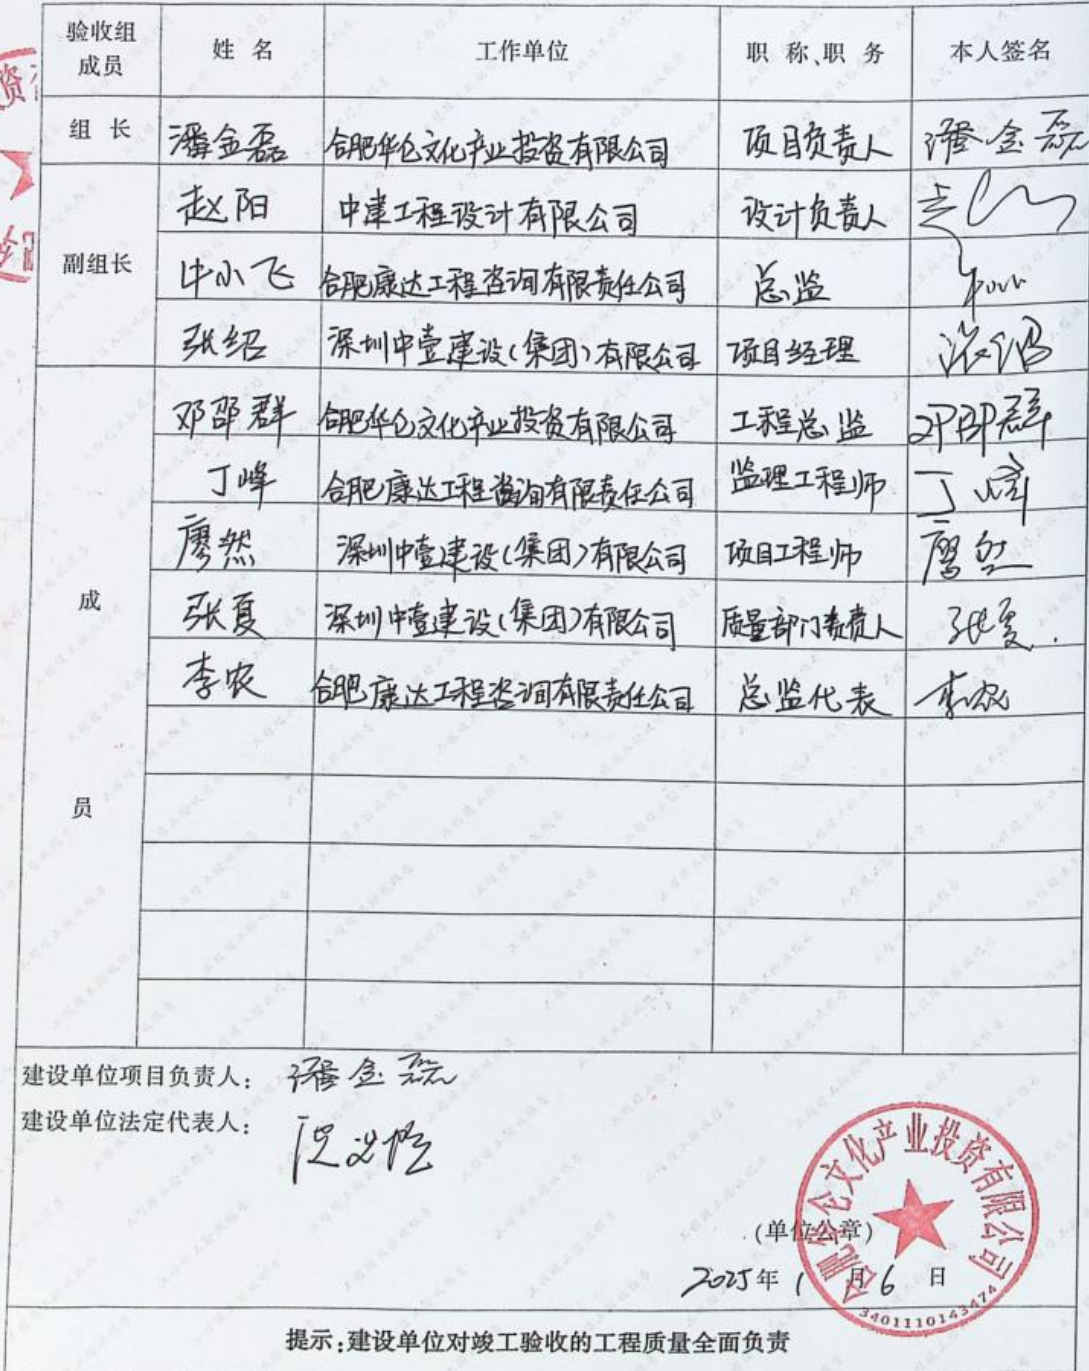 验收组成员 姓名 工作单位 职称、职务 本人签名
组长 潘金磊 合肥华仑文化产业投资有限公司 项目负责人 潘金磊
副组长 赵阳 中建工程设计有限公司 设计负责人
牛小飞 合肥康达工程咨询有限责任公司 总监
张绍 深圳中壹建设(集团)有限公司 项目经理 张绍
成员 邓邵群 合肥华仑文化产业投资有限公司 工程总监 邓邵群
丁峰 合肥康达工程咨询有限责任公司 监理工程师 丁峰
廖然 深圳中壹建设(集团)有限公司 项目工程师 廖然
张夏 深圳中壹建设(集团)有限公司 质量部门负责人 张夏.
李农 合肥康达工程咨询有限责任公司 总监代表 李农
建设单位项目负责人: 潘金磊
建设单位法定代表人:
合肥华仑文化产业投资有限公司
(单位公章)
2025年1月6日
3401110143474
提示:建设单位对竣工验收的工程质量全面负责